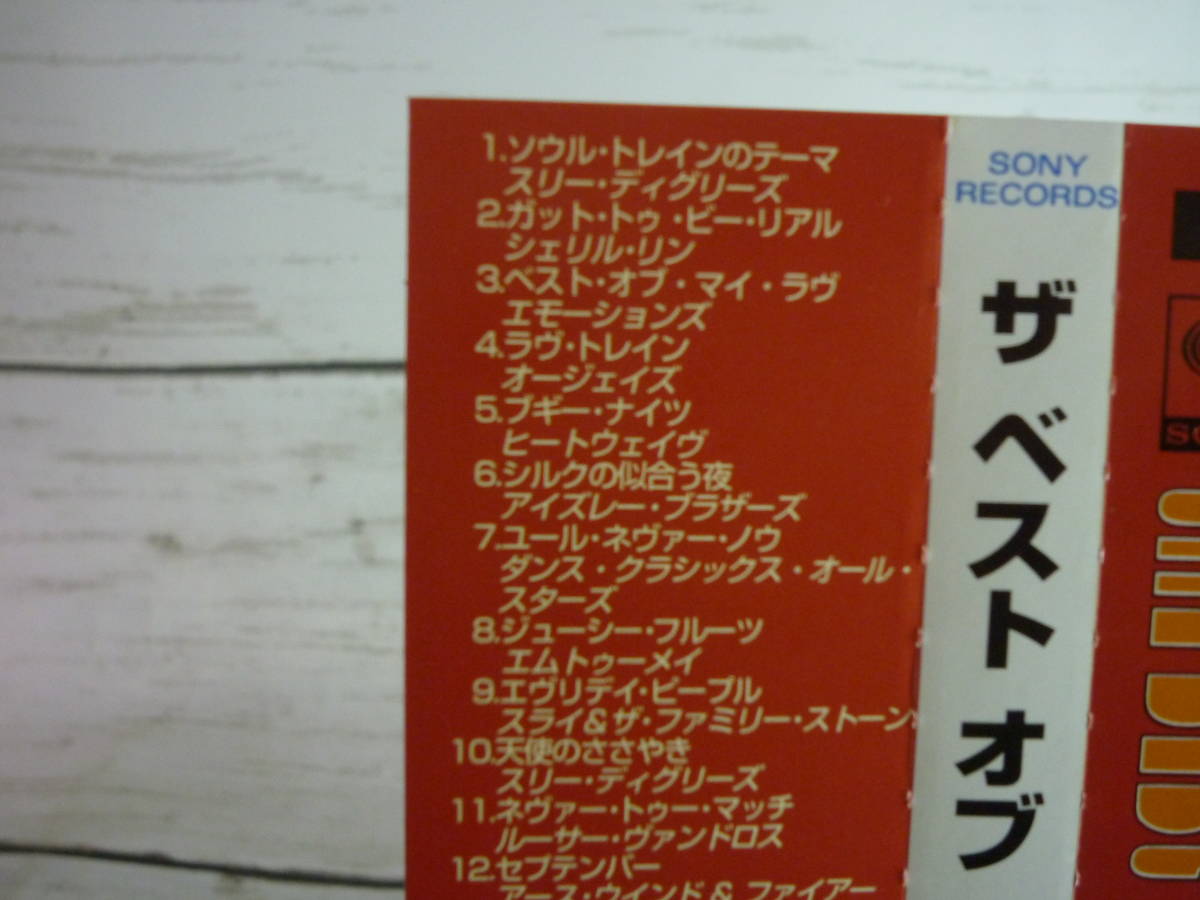 1.ソウル・トレインのテーマ
スリー・ディグリーズ
2.ガット・トゥ・ビー・リアル
シェリル・リン
3.ベスト・オブ・マイ・ラヴ
エモーションズ
4.ラヴ・トレイン
オージェイズ
5.ブギー・ナイツ
ヒートウェイヴ
6.シルクの似合う夜
アイズレー・ブラザーズ
7.ユール・ネヴァー・ノウ
ダンス・クラシックス・オール・
スターズ
8.ジューシー・フルーツ
エムトゥーメイ
9.エヴリデイ・ピープル
スライ&ザ・ファミリー・ストーン
10.天使のささやき
スリー・ディグリーズ
11.ネヴァー・トゥー・マッチ
ルーサー・ヴァンドロス
12.セプテンバー
アース・ウインド & ファイアー
SONY
RECORDS
ザ ベスト オブ